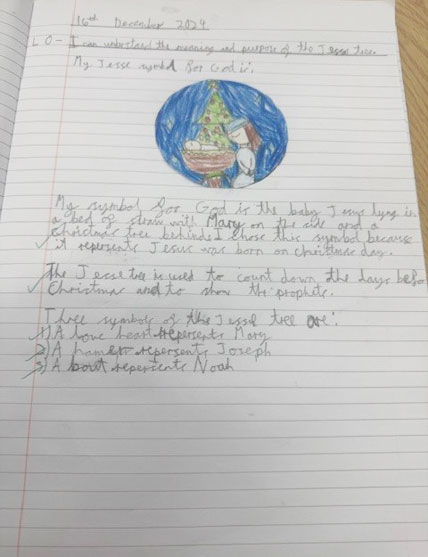 16th December 2024
LO- I can understand the meaning and purpose of the Jesse tree.
My Jesse symbol for God is:
My symbol for God is the baby Jesus lying in
a bed of straw with Mary on the side and a
christmas tree behind. I chose this symbol because
it repersents Jesus was born on christmas day.
The Jesse tree is used to count down the days befo
Christmas and to show the prophets.
Three symbols of this Jesse tree are:
1) A love heart repersents Mary
2) A hamer repersents Joseph
3) A bout repersents Noah